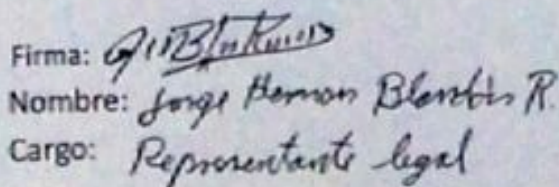 Firma:
Nombre: Jorge Hernan R
Cargo: Representante legal